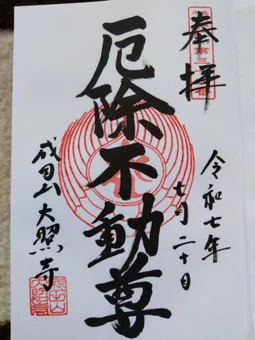 奉拝
令和七年
七月二十日
厄除不動尊
成田山大照寺